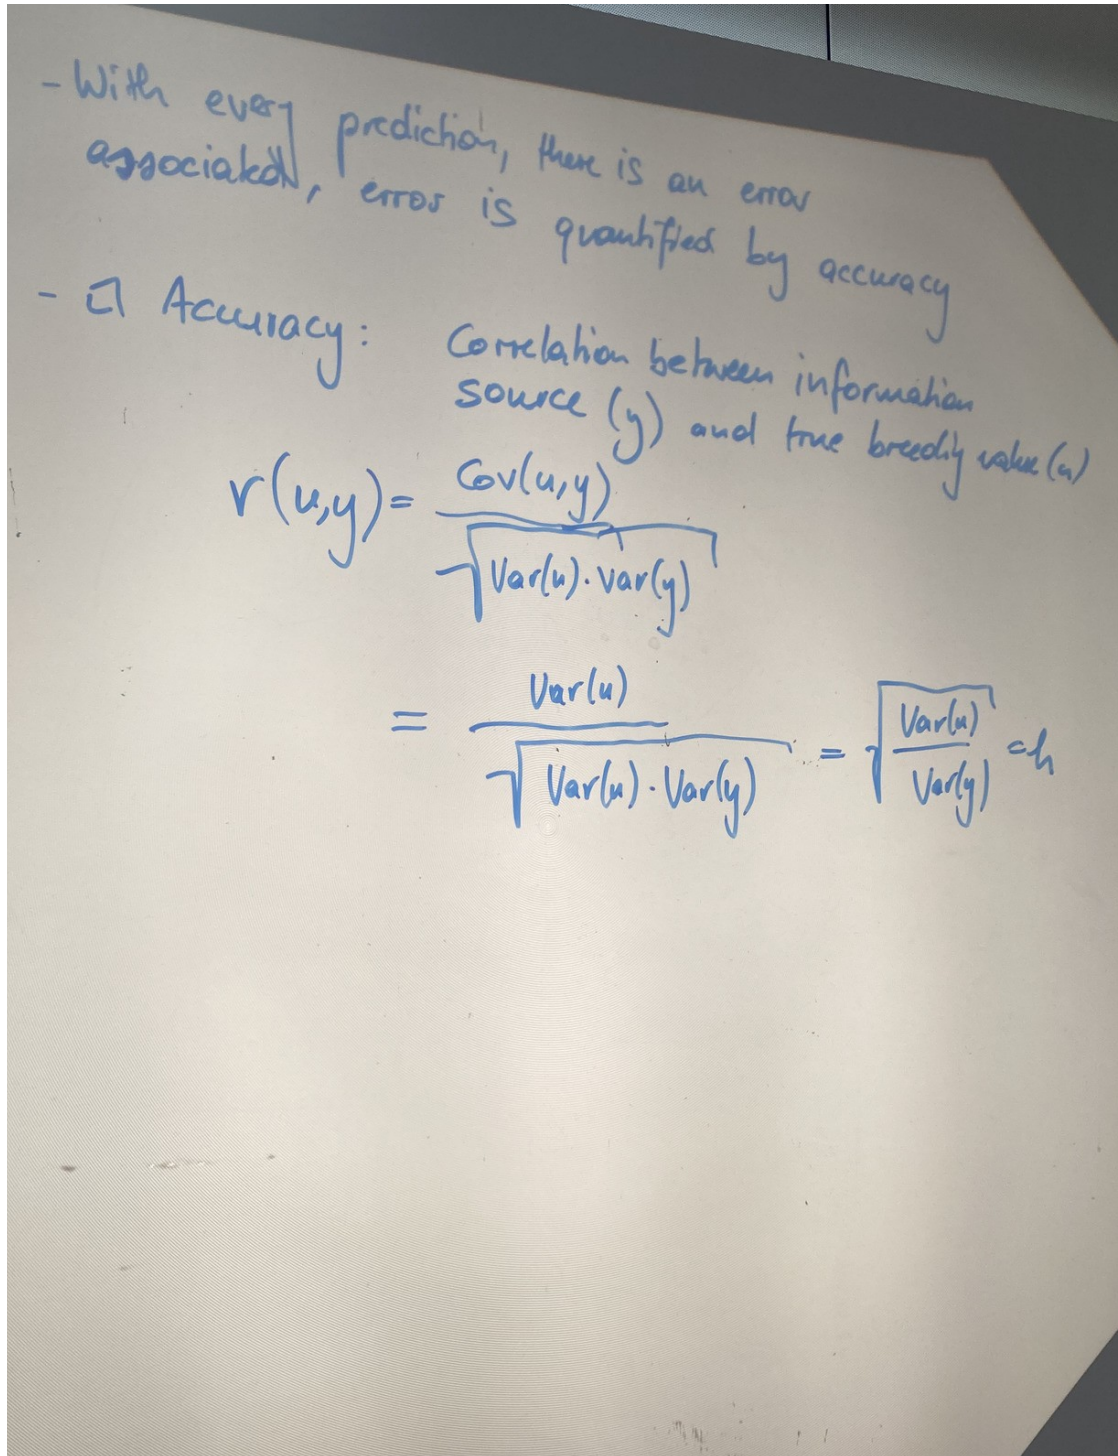 - With every prediction, there is an error
associated, error is quantified by accuracy
- Accuracy: Correlation between information
source (y) and true breeding value (u)
r(u,y) = Cov(u,y) / √(Var(u) · Var(y))
= Var(u) / √(Var(u) · Var(y)) = √(Var(u) / Var(y)) = h